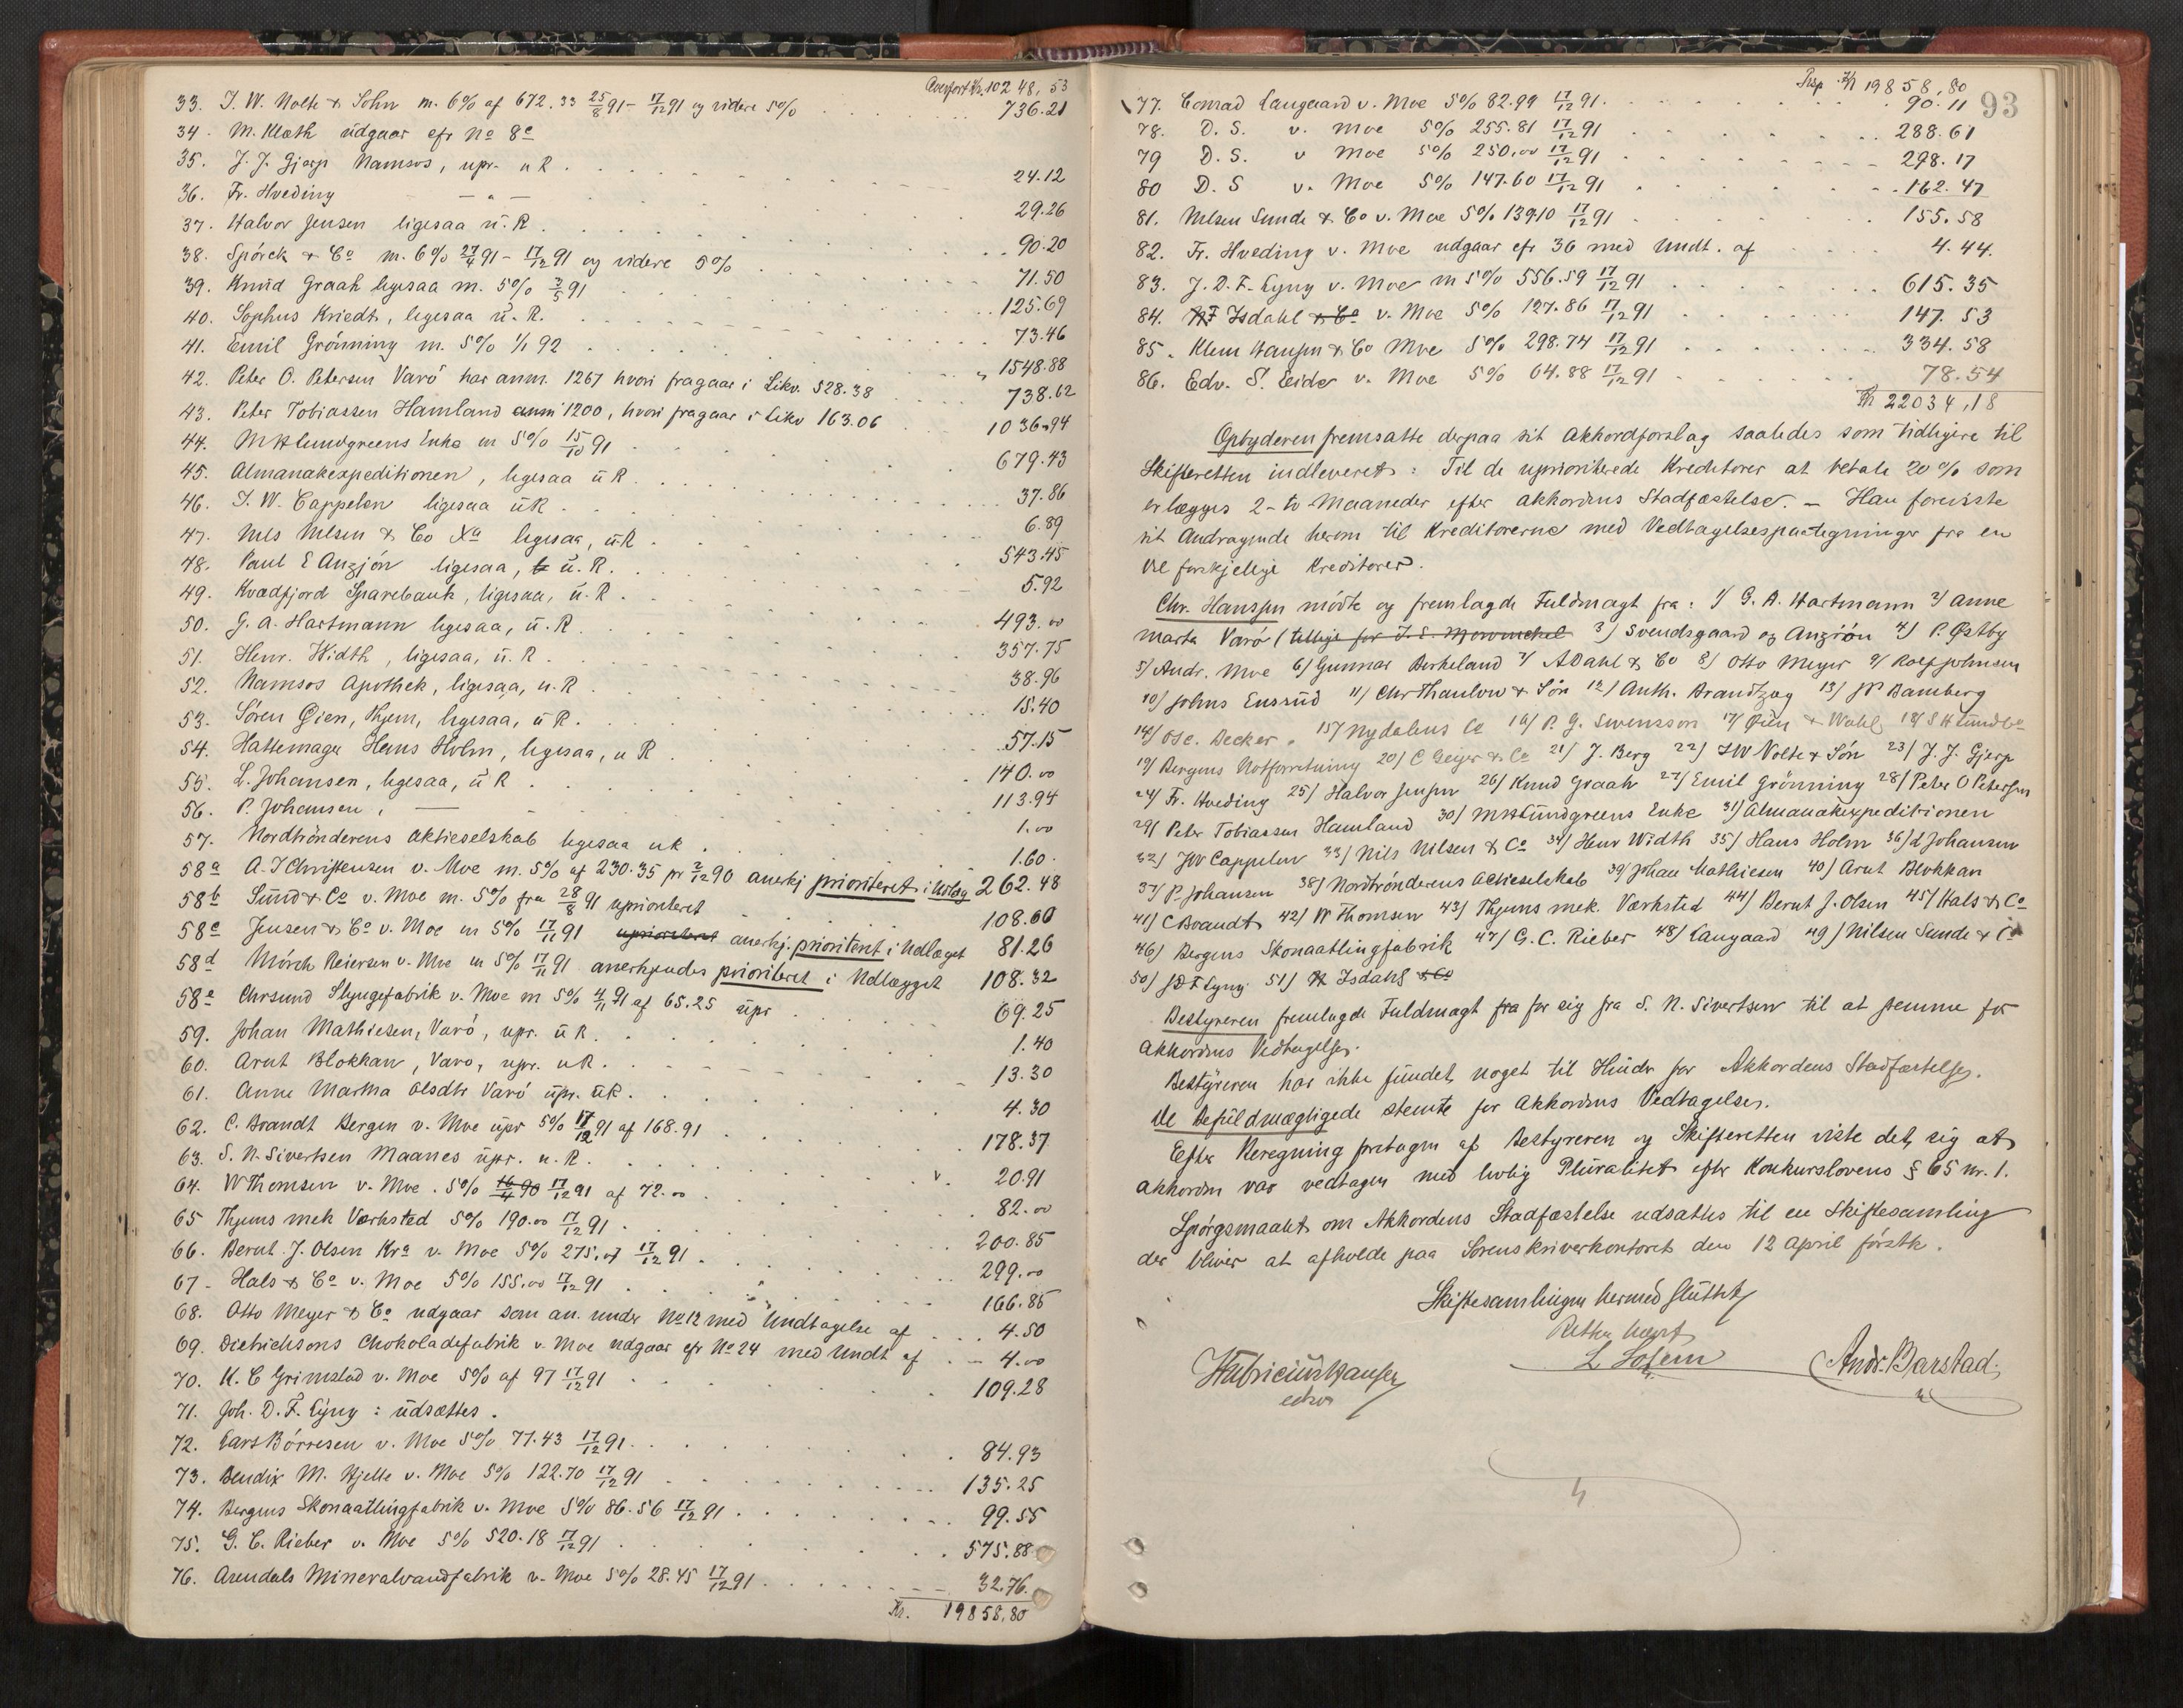 Overført Kr. 10248,53
33. J. W. Nolte & Sohn m. 6% af 672.33 25/8 91 - 17/12 91 og videre 5% 736.21
34. M. Klath udgaar efr No 8c
35. J. J. Gjerp Namsos, upr. u R. 24.12
36. Fr. Hveding — " — 29.26
37. Halvor Jensen ligesaa u. R. 90.20
38. Spörck & Co m. 6% 27/4 91 - 17/12 91 og videre 5% 71.50
39. Knud Graah ligesaa m. 5% 3/5 91 125.69
40. Sophus Kriedt, ligesaa u. R. 73.46
41. Emil Grönning m. 5% 1/1 92 1548.88
42. Peter O. Petersen Varö har anm. 1267 hvori fragaar i Likv. 528.38 738.62
43. Peter Tobiassen Hamland anm 1200, hvori fragaar i Likv 163.06 1036.94
44. M H Lundgreens Enke m 5% 15/10 91 679.43
45. Almanakexpeditionen, ligesaa u R. 37.86
46. J. W. Cappelen ligesaa u R 6.89
47. Nils Nilsen & Co Xa ligesaa, u. R 543.45
48. Paul E Anzjön ligesaa, u. R. 5.92
49. Kvædfjord Sparebank, ligesaa, u. R 493.00
50. G. A. Hartmann ligesaa, u. R 357.75
51. Henr. Width, ligesaa, u. R. 38.96
52. Namsos Apothek, ligesaa, u. R 15.40
53. Sören Öien, Thjem, ligesaa, u R. 57.15
54. Hattemager Hans Holm, ligesaa, u R 140.00
55. L. Johansen, ligesaa, u R 113.94
56. P. Johansen, — 1.00
57. Nordtrönderens Aktieselskab ligesaa uR. 1.60.
58a A. J Christensen v. Moe m. 5% af 230.35 pr 2/12 90 anerkj prioriteret i Udlæg 262.48
58b Sund & Co v. Moe m. 5% fra 28/8 91 uprioriteret 108.60
58c Jensen & Co v. Moe m 5% 17/11 91 uprioriteret anerkj. prioriteret i Udlæget 81.26
58d Mörch Reiersen v. Moe m 5% 17/11 91 anerkjendes prioriteret i Udlægget 108.32
58e Chrsund Slyngefabrik v. Moe m 5% 4/11 91 af 65.25 upr 69.25
59. Johan Mathiesen, Varö, upr. u R. 1.40
60. Arnt Blokkan, Varö, upr. uR. 13.30
61. Anne Martha Olsdtr Varö upr. uR. 4.30
62. C. Brandt Bergen v. Moe upr 5% 17/12 91 af 168.91 178.37
63. S. N. Sivertsen Maanes upr. u. R. 20.91
64. W Thomsen v. Moe. 5% 16/4 90 17/12 91 af 72.00 82.00
65 Thjems mek Værksted 5% 190.00 17/12 91. 200.85
66. Bernt. J. Olsen Kra v. Moe 5% 275.07 17/12 91. 299.00
67 - Hals & Co v. Moe 5% 155.00 17/12 91. 166.85
68. Otto Meyer & Co udgaar som an. under No 12 med Undtagelse af 4.50
69. Dietrichsons Chokoladefabrik v. Moe udgaar efr No 24 med Undt af 4.00
70. K. C Grimstad v. Moe 5% af 97 17/12 91 109.28
71. Joh. D. F. Eyng: udsættes.
72. Lars Börresen v. Moe 5% 77.43 17/12 91. 84.93
73. Bendix M. Hjelle v. Moe 5% 122.70 17/12 91 135.25
74. Bergens Skonaatlingfabrik v. Moe 5% 86.56 17/12 91. 99.55
75. G. C. Rieber v. Moe 5% 520.18 17/12 91 575.88
76. Arendals Mineralvandfabrik v. Moe 5% 28.45 17/12 91. 32.76.
Kr. 19858,80
Trsp Kr 19858,80
93
77. Conrad Langaard v. Moe 5% 82.99 17/12 91. 90.11
78. D. S. v. Moe 5% 255.81 17/12 91 288.61
79 D. S. v Moe 5% 250,00 17/12 91 298.17
80 D. S v. Moe 5% 147.60 17/12 91 162.47
81. Nilsen Sunde & Co v. Moe 5% 139.10 17/12 91 155.58
82. Fr. Hveding v. Moe udgaar efr 36 med Undt. af 4.44.
83. J. D. F. Eyng v. Moe m 5% 556.59 17/12 91 615.35
84. Isdahl & Co v. Moe 5% 127.86 17/12 91 147.53
85. Klem Hansen & Co Moe 5% 298.74 17/12 91 334.58
86. Edv. S. Eide v. Moe 5% 64.88 17/12 91 78.54
Kr 22034,18
Opbyderen fremsatte derpaa sit Akkordforslag saaledes som tidligere til
Skifteretten indleveret: Til de uprioriterede Kreditorer at betale 20% som
erlægges 2-to Maaneder efter Akkordens Stadfæstelse. - Han foreviste
sit Andragende herom til Kreditorerne med Vedtagelsespaategninger fra en
Del forskjellige Kreditorer.
Chr. Hanssen mödte og fremlagde Fuldmagt fra: 1/ G. A. Hartmann 2/ Anne
Marta Varö (tillige for J. S. Mowinckel 3/ Svendsgaard og Anzjön 4/ P. Østby
5/ Andr. Moe 6/ Gunnar Birkeland 7/ A Dahl & Co 8/ Otto Meyer 9/ Rolf Johnsen
10/ Johns Ensrud 11/ Chr Thaulow & Sön 12/ Anth. Brandtzæg 13/ Bamberg
14/ Osc. Becker. 15/ Nydalens Co 16/ P. G. Swensson 17/ Öien & Wahl 18/ S H Lund & Co
19/ Bergens Notforretning 20/ C Geijer & Co 21/ J. Berg 22/ J W Nolte & Sön 23/ J. J. Gjerp
24/ Fr. Hveding 25/ Halvor Jensen 26/ Knud Graah 27/ Emil Grönning 28/ Peter O Petersen
29/ Peter Tobiassen Hamland 30/ M H Lundgreens Enke 31/ Almanakexpeditionen
32/ JW Cappelen 33/ Nils Nilsen & Co 34/ Henr Width 35/ Hans Holm 36/ L Johansen
37/ P. Johansen 38/ Nordtrönderens Actieselskab 39/ Johan Mathiesen 40/ Arnt Blokkan
41/ C Brandt 42/ W Thomsen 43/ Thjems mek. Værksted 44/ Bernt J. Olsen 45/ Hals & Co
46/ Bergens Skonaatlingfabrik 47/ G. C. Rieber 48/ Langaard 49/ Nilsen Sunde & Co
50/ J D F Eyng 51/ Isdahl & Co
Bestyreren fremlagde Fuldmagt fra for sig fra S. N. Sivertsen til at stemme for
Akkordens Vedtagelse.
Bestyreren har ikke fundet noget til Hinder for Akkordens Stadfæstelse.
De befuldmægtigede stemte for Akkordens Vedtagelse.
Efter Beregning foretagen af Bestyreren og Skifteretten viste det sig at
Akkorden var vedtagen med lovlig Pluralitet efter Konkurslovens § 65 nr. 1.
Spörgsmaalet om Akkordens Stadfæstelse udsattes til en Skiftesamling
der bliver at afholde paa Sorenskriverkontoret den 12 April förstk.
Skiftesamlingen hermed sluttet
Retten hævet
L Solem
Fabricius Hansen
Andr. Barstad